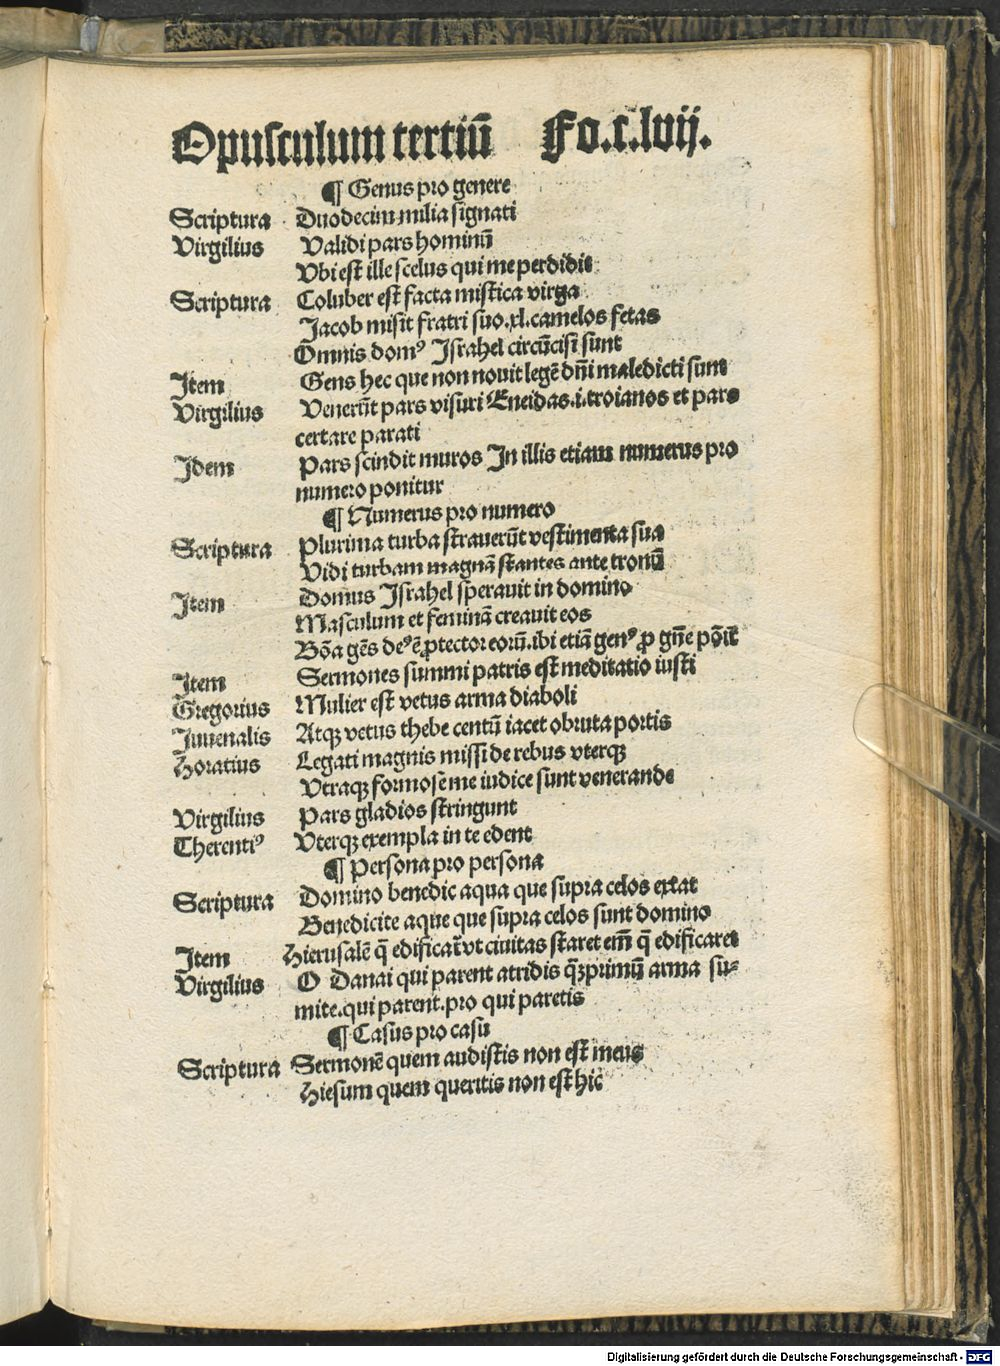 Opusculum tertiū Fo.c.lvij.
¶ Genus pro genere
Scriptura Duodecim milia signati
Virgilius Validi pars hominū
Vbi est ille scelus qui me perdidit
Scriptura Coluber est facta mistica virga
Jacob misit fratri suo.xl.camelos fetas
Omnis domꝰ Israhel circūcisi sunt
Item Gens hec que non novit legē dn̄i maledicti sunt
Virgilius Venerūt pars visuri Eneidas.i.troianos et pars
certare parati
Idem Pars scindit muros In illis etiam numerus pro
numero ponitur
¶ Numerus pro numero
Scriptura Plurima turba straverūt vestimenta sua
Vidi turbam magnā stantes ante tronū
Item Domus Israhel speravit in domino
Masculum et feminā creavit eos
Bōa gēs deꝰ ē ꝓtector eorū.ibi etiā genꝰ ꝓ gn̄e pōit̄
Item Sermones summi patris est meditatio iusti
Gregorius Mulier est vetus arma diaboli
Juvenalis Atqꝫ vetus thebe centū iacet obruta portis
Horatius Legati magnis missi de rebus vterqꝫ
Vtraqꝫ formose me iudice sunt venerande
Virgilius Pars gladios stringunt
Therentiꝰ Vterqꝫ exempla in te edent
¶ Persona pro persona
Scriptura Domino benedic aqua que supra celos extat
Benedicite aque que supra celos sunt domino
Item Hierusalē q̄ edificat̄ vt civitas staret em̄ q̄ edificaret
Virgilius O Danai qui parent atridis q̄ꝫprimū arma su⸗
mite.qui parent.pro qui paretis
¶ Casus pro casu
Scriptura Sermonē quem audistis non est meus
Hiesum quem queritis non est hic
Digitalisierung gefördert durch die Deutsche Forschungsgemeinschaft - DFG